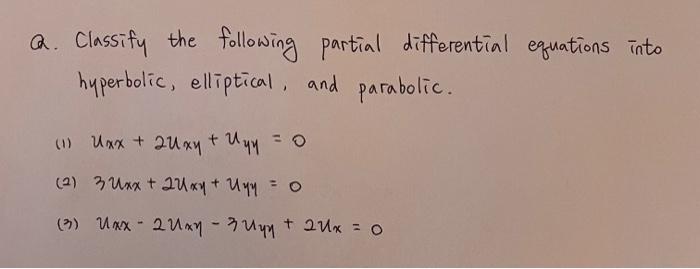 Q. Classify the following partial differential equations into
hyperbolic, elliptical, and parabolic.
(1) Uxx + 2Uxy + Uyy = 0
(2) 3Uxx + 2Uxy + Uyy = 0
(3) Uxx - 2Uxy - 3Uyy + 2Ux = 0